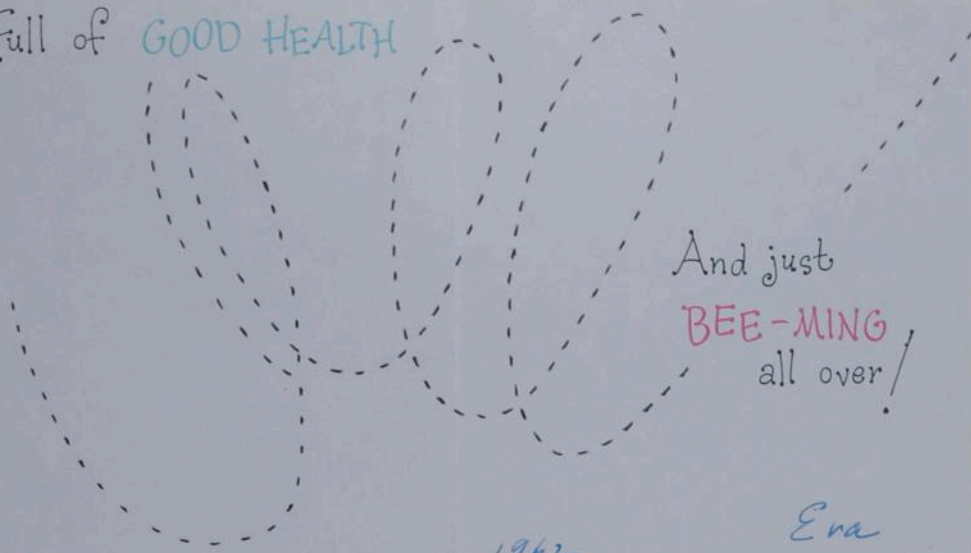 Full of GOOD HEALTH
And just
BEE-MING
all over!
Eva
1962